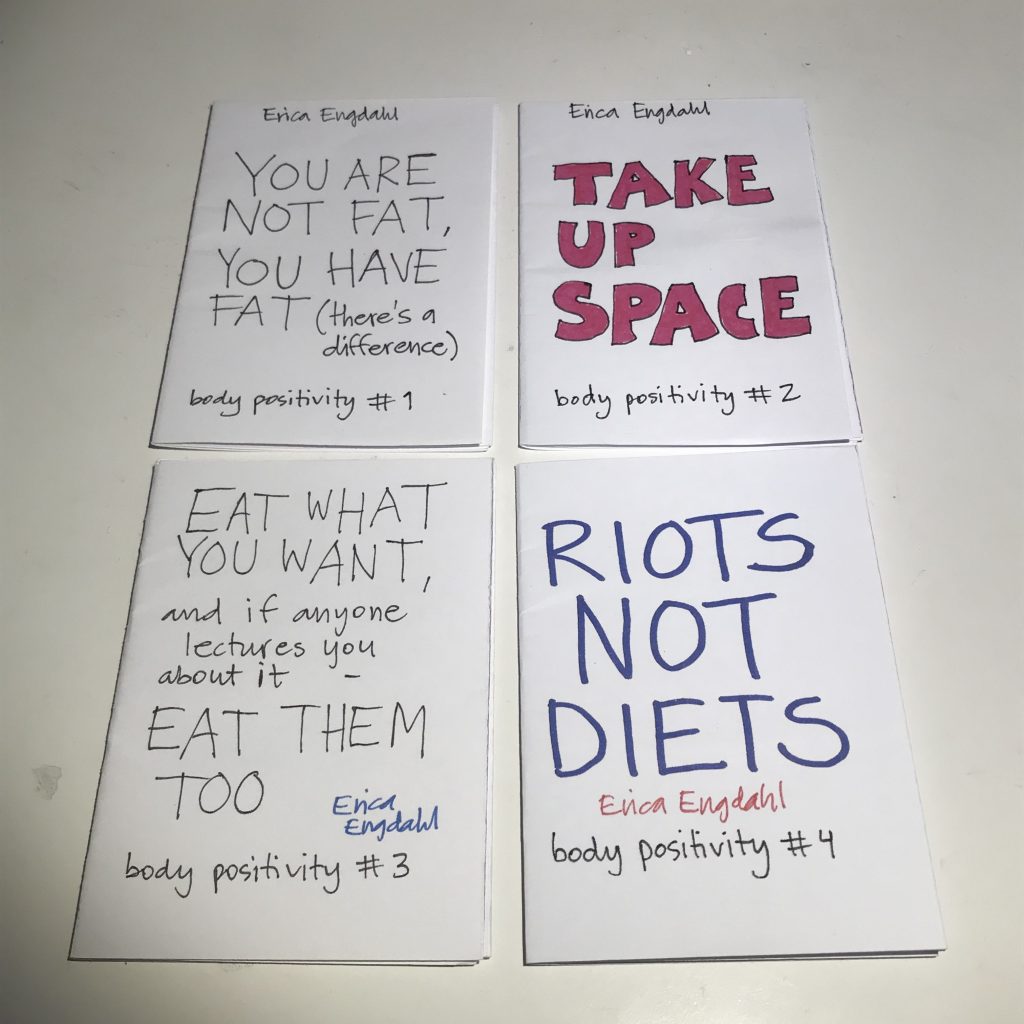 Erica Engdahl
YOU ARE
NOT FAT,
YOU HAVE
FAT (there's a
difference)
body positivity #1
Erica Engdahl
TAKE
UP
SPACE
body positivity #2
EAT WHAT
YOU WANT,
and if anyone
lectures you
about it -
EAT THEM
TOO
Erica
Engdahl
body positivity #3
RIOTS
NOT
DIETS
Erica Engdahl
body positivity #4